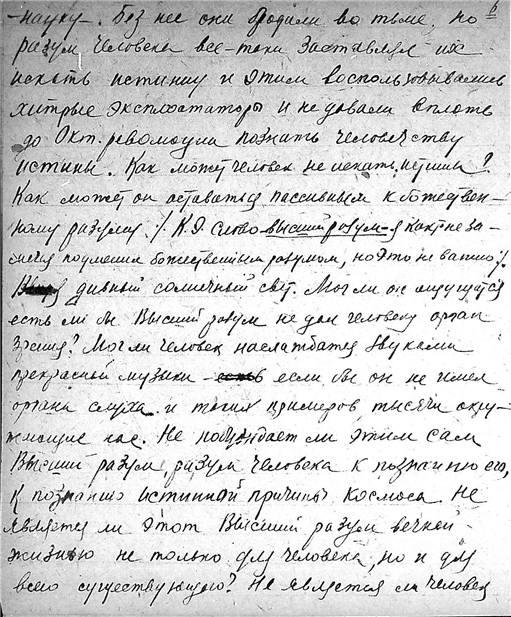 6
науку-. Без нее они бродили во тьме, но
разум человека все-таки заставлял их
искать истинну и этим воспользовывались
хитрые эксплоататоры и не давали вплоть
до Окт. революции познать человечеству
истины. Как может человек не искать истины?
Как может он оставаться пассивным к божествен-
ному разуму. /. К.Э. слово высший разум-я как не за-
менил божественным разумом, но это не важно /.
дивный солнечный свет. Мог ли он ощущатся
есть ли бы Высший разум не дал человеку орган
зрения? Мог ли человек наслаждатся звуками
прекрасной музыки - если бы он не имел
органа слуха. и таких примеров тысячи окру-
жающие нас. Не побуждает ли этим сам
Высший разум, разум человека к познанию его,
к познанию истинной причины космоса. Не
является ли этот Высший разум вечной
жизнью не только для человека, но и для
всего существующего? Не является ли человек